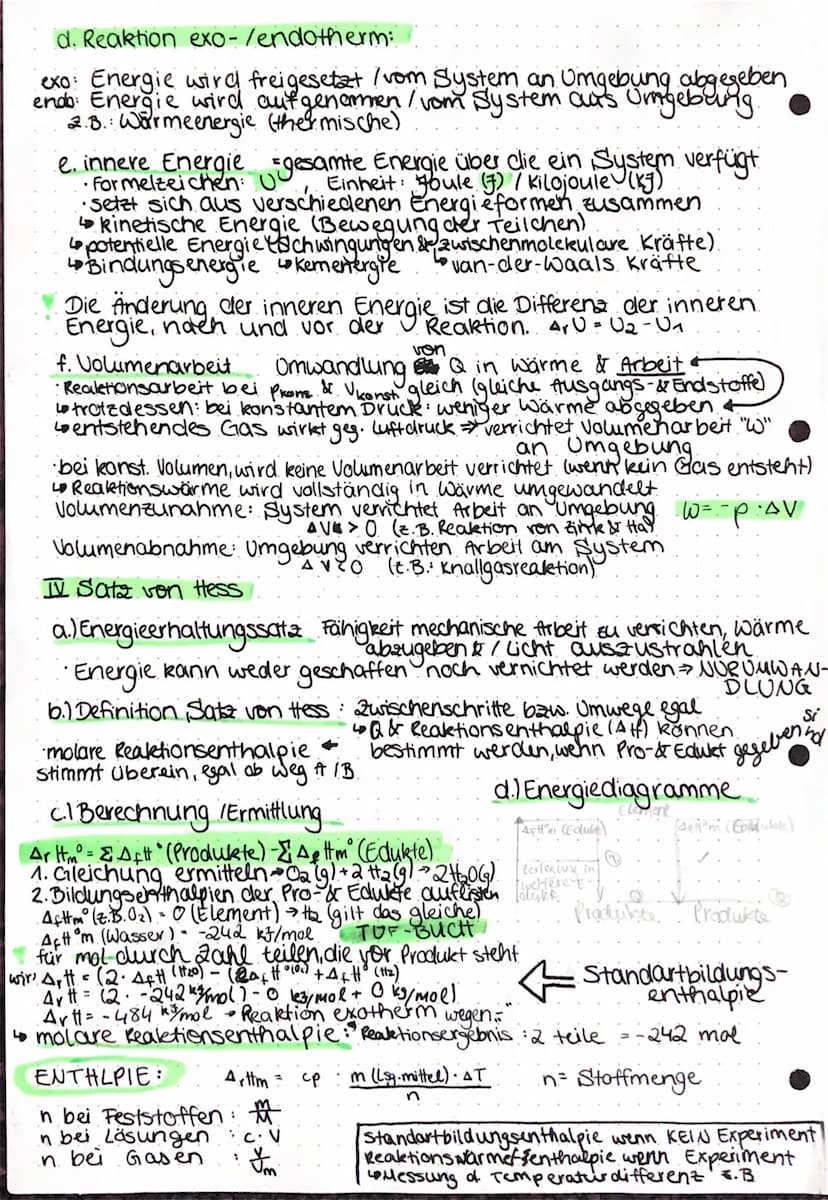 d. Reaktion exo-/endotherm:
exo: Energie wird freigesetzt / vom System an Umgebung abgegeben
endo: Energie wird aufgenommen / vom System aus Umgebung
z.B.: Wärmeenergie (thermische)
e. innere Energie = gesamte Energie über die ein System verfügt
· Formelzeichen: U, Einheit: Joule (J) / Kilojoule (KJ)
· setzt sich aus verschiedenen Energieformen zusammen
↳ kinetische Energie (Bewegung der Teilchen)
↳ potentielle Energie (Schwingungen & zwischenmolekulare Kräfte)
↳ Bindungsenergie ↳ Kernenergie ↳ van-der-Waals Kräfte
! Die Änderung der inneren Energie ist die Differenz der inneren
Energie, nach und vor der Reaktion. ΔrU = U2 - U1
f. Volumenarbeit Umwandlung von Q in Wärme & Arbeit
· Reaktionsarbeit bei pkons & Vkonst gleich (gleiche Ausgangs- & Endstoffe)
↳ trotzdessen: bei konstantem Druck: weniger Wärme abgegeben
↳ entstehendes Gas wirkt geg. Luftdruck ⇒ verrichtet Volumenarbeit "W"
an Umgebung
· bei konst. Volumen, wird keine Volumenarbeit verrichtet (wenn kein Gas entsteht)
↳ Reaktionswärme wird vollständig in Wärme umgewandelt
Volumenzunahme: System verrichtet Arbeit an Umgebung W = -p · ΔV
ΔV > 0 (z.B. Reaktion von Zink & HCl)
Volumenabnahme: Umgebung verrichten Arbeit am System
ΔV < 0 (z.B.: Knallgasreaktion)
IV Satz von Hess
a.) Energieerhaltungssatz Fähigkeit mechanische Arbeit zu verrichten, Wärme
abzugeben & / Licht auszustrahlen
· Energie kann weder geschaffen noch vernichtet werden ⇒ NUR UMWAN-
DLUNG
b.) Definition Satz von Hess: Zwischenschritte bzw. Umwege egal
↳ Q & Reaktionsenthalpie (ΔH) können
bestimmt werden, wenn Pro- & Edukt gegeben sind
· molare Reaktionsenthalpie
stimmt überein, egal ob Weg A / B
d.) Energiediagramme
c.) Berechnung / Ermittlung
Element
ΔfH°m (Edukte)
ΔfH°m (Produkte)
Zerlegung in
Produkte
Produkte
ΔrHm° = Σ ΔfH° (Produkte) - Σ ΔfHm° (Edukte)
1. Gleichung ermitteln → O2 (g) + 2 H2 (g) → 2H2O(g)
2. Bildungsenthalpien der Pro- & Edukte auflisten
ΔfHm° (z.B. O2) = 0 (Element) → H2 (gilt das gleiche)
ΔfH°m (Wasser) = -242 kJ/mol TUF-BUCH
! für mol durch Zahl teilen, die vor Produkt steht
wir: ΔrH = (2 · ΔfH (H2O)) - (2ΔfH° (O2) + ΔfH° (H2)
ΔrH = (2 · -242 kJ/mol) - 0 kJ/mol + 0 kJ/mol)
ΔrH = -484 kJ/mol → Reaktion exotherm wegen "-"
Standartbildungs-
enthalpie
↳ molare Reaktionsenthalpie: Reaktionsergebnis : 2 teile = -242 mol
ENTHLPIE: ΔrHm = cp · m (Lsg.mittel) · ΔT / n n = Stoffmenge
n bei Feststoffen: m/M
n bei Lösungen: c · V
n bei Gasen: V/Vm
Standartbildungsenthalpie wenn KEIN Experiment
Reaktionswärme/-enthalpie wenn Experiment
↳ Messung d. Temperaturdifferenz z.B